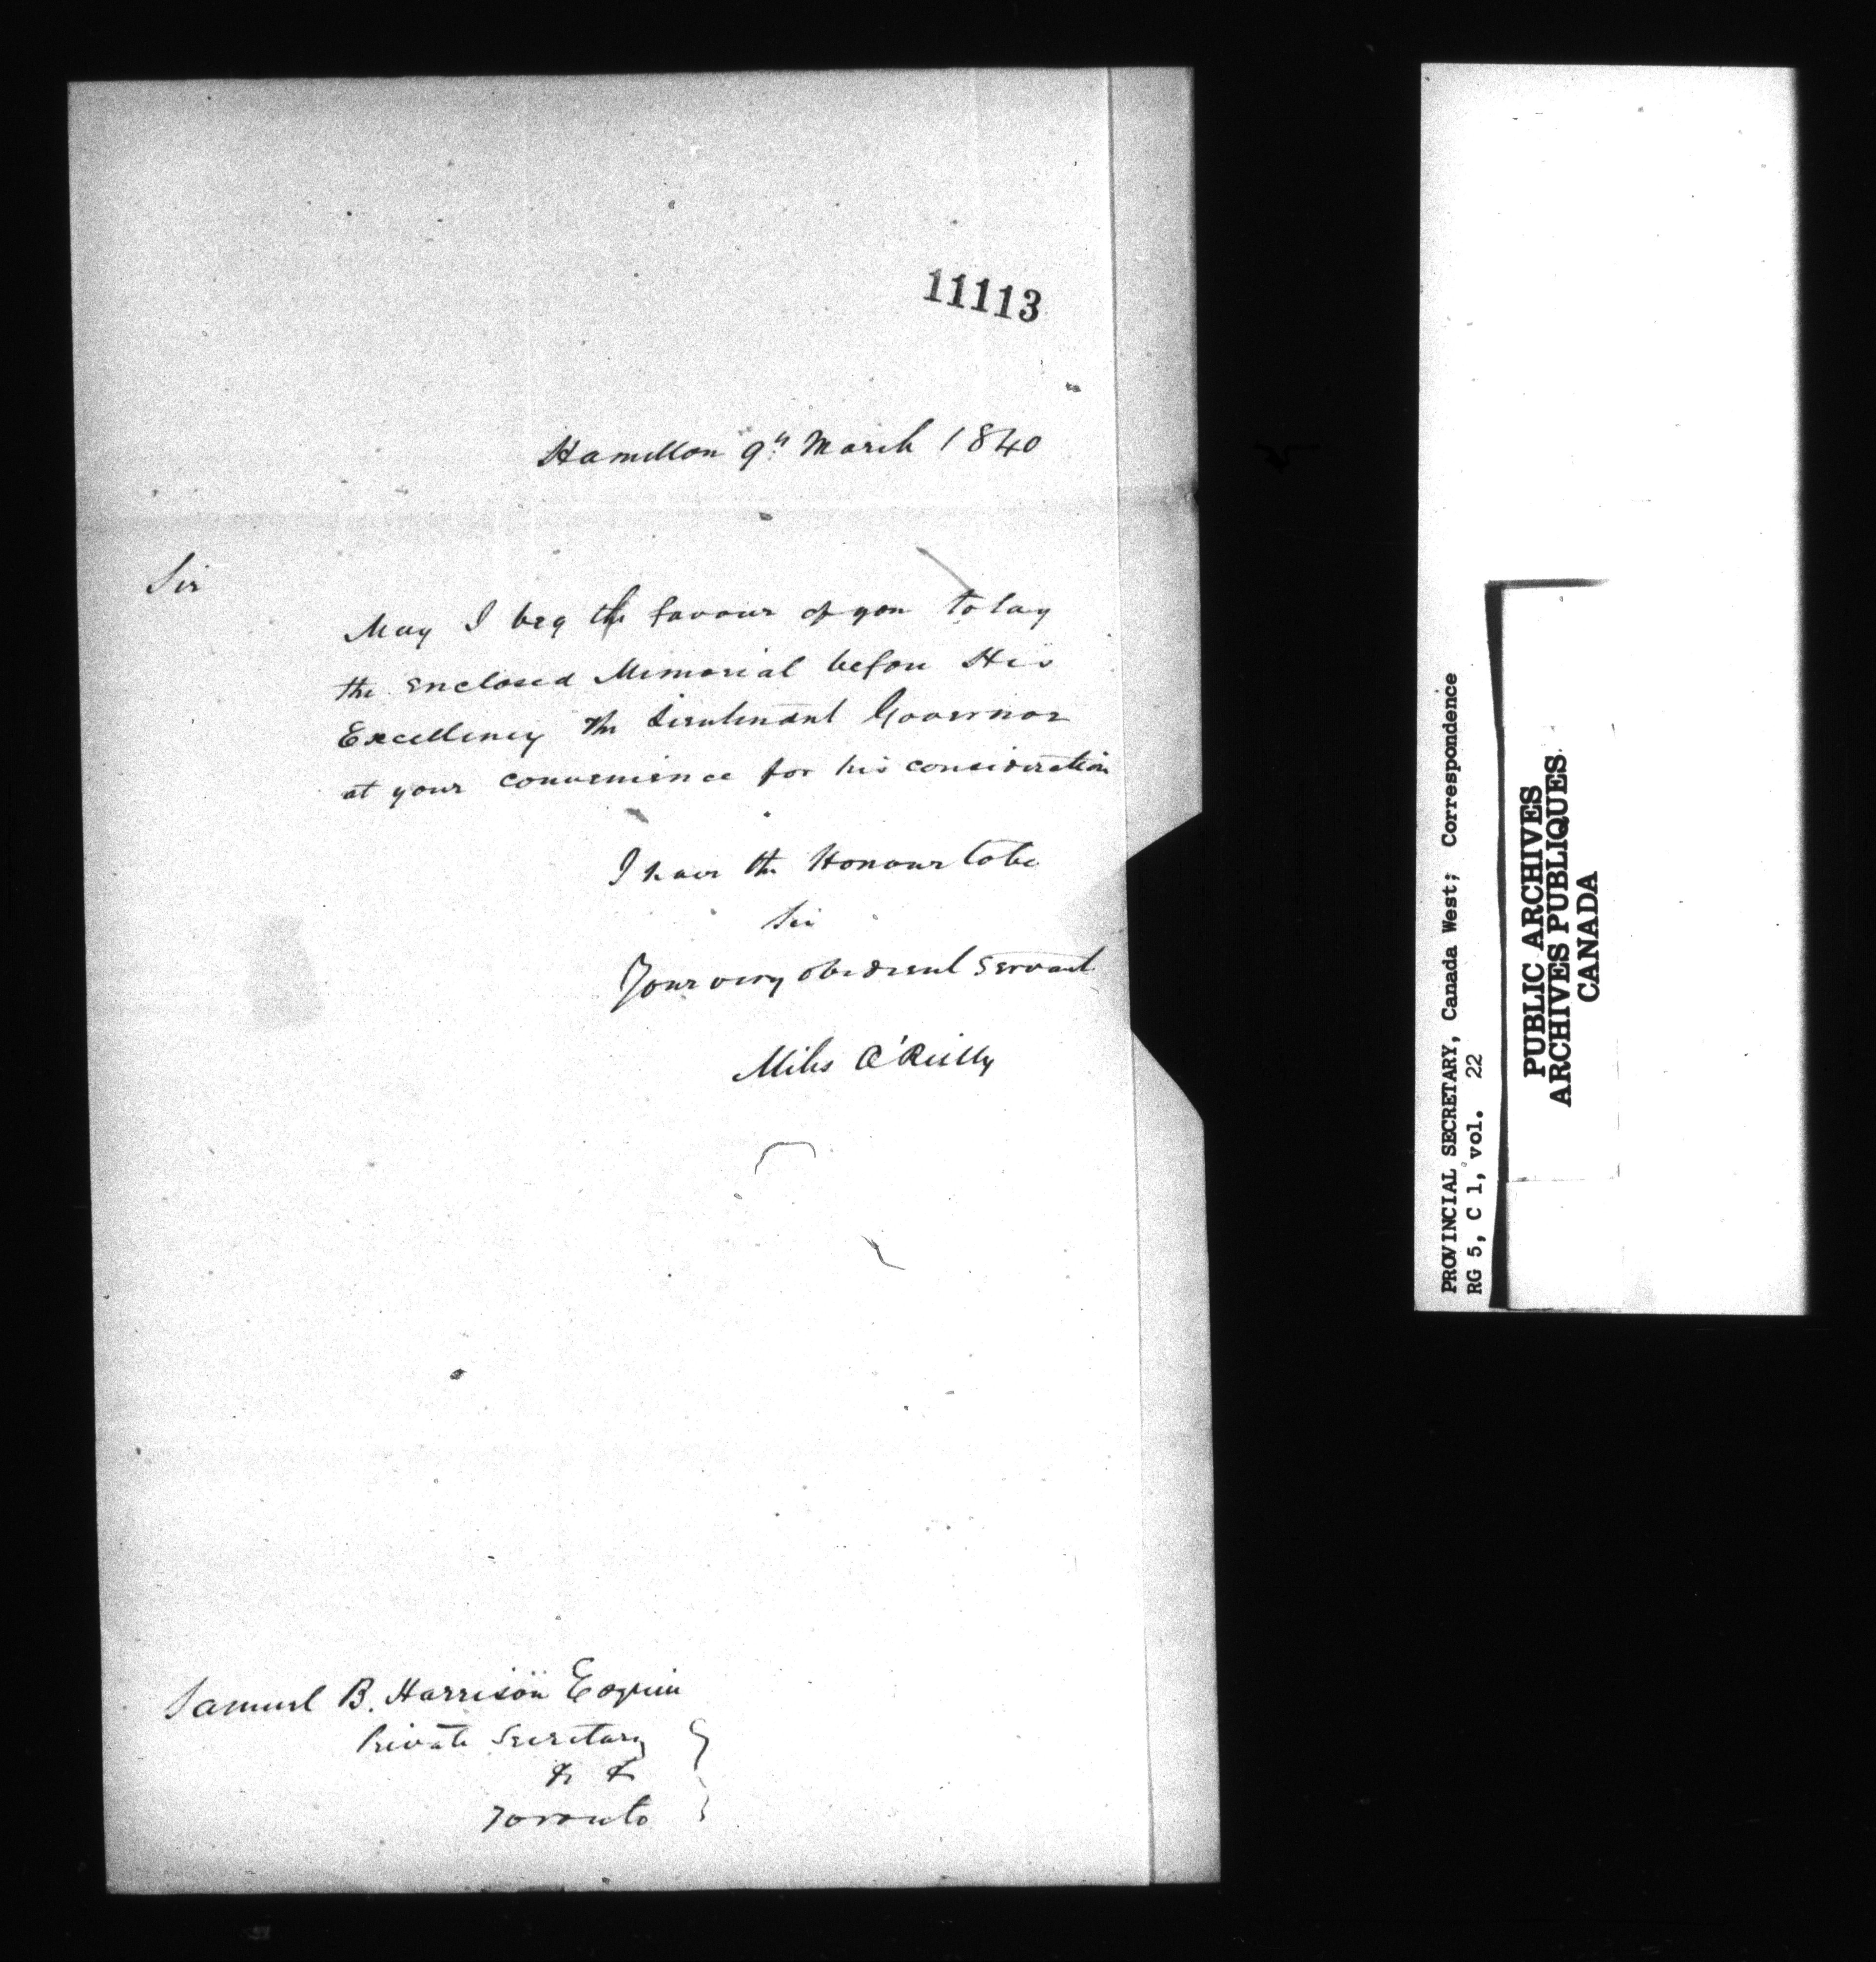 11113
Hamilton 9th March 1840
Sir
May I beg the favour of you to lay
the enclosed Memorial before His
Excellency the Lieutenant Governor
at your convenience for his consideration
I have the Honour to be
Sir
Your very obedient Servant
Miles O'Reilly
Samuel B. Harrison Esquire
Private Secretary
&c &c
Toronto
PROVINCIAL SECRETARY, Canada West; Correspondence
RG 5, C 1, vol. 22
PUBLIC ARCHIVES
ARCHIVES PUBLIQUES
CANADA